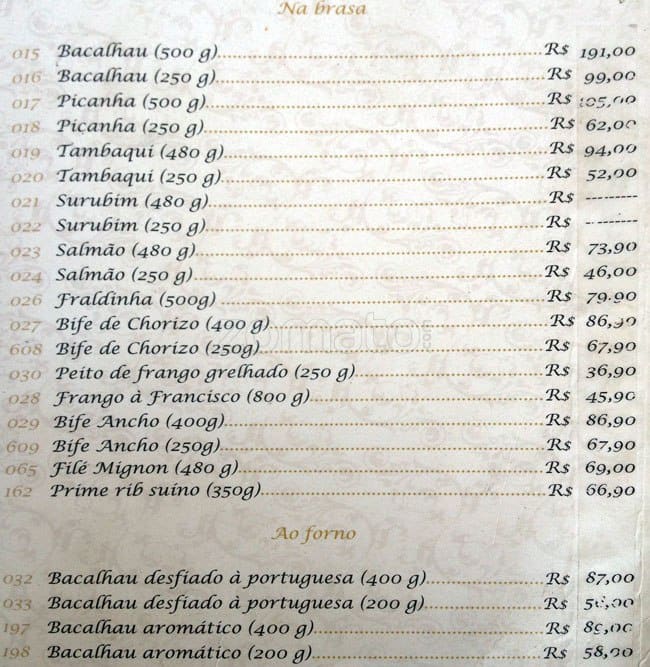 Na brasa
015 Bacalhau (500 g) R$ 191,00
016 Bacalhau (250 g) R$ 99,00
017 Picanha (500 g) R$
018 Picanha (250 g) R$ 62,00
019 Tambaqui (480 g) R$ 94,00
020 Tambaqui (250 g) R$ 52,00
021 Surubim (480 g) R$ ---------
022 Surubim (250 g) R$ ---------
023 Salmão (480 g) R$ 73,90
024 Salmão (250 g) R$ 46,00
026 Fraldinha (500g) R$ 79,90
027 Bife de Chorizo (400 g) R$ 86,90
608 Bife de Chorizo (250g) R$ 67,90
030 Peito de frango grelhado (250 g) R$ 36,90
028 Frango à Francisco (800 g) R$ 45,90
029 Bife Ancho (400g) R$ 86,90
609 Bife Ancho (250g) R$ 67,90
065 Filé Mignon (480 g) R$ 69,00
162 Prime rib suíno (350g) R$ 66,90
zomato
Ao forno
032 Bacalhau desfiado à portuguesa (400 g) R$ 87,00
033 Bacalhau desfiado à portuguesa (200 g) R$
197 Bacalhau aromático (400 g) R$
198 Bacalhau aromático (200 g) R$ 58,00